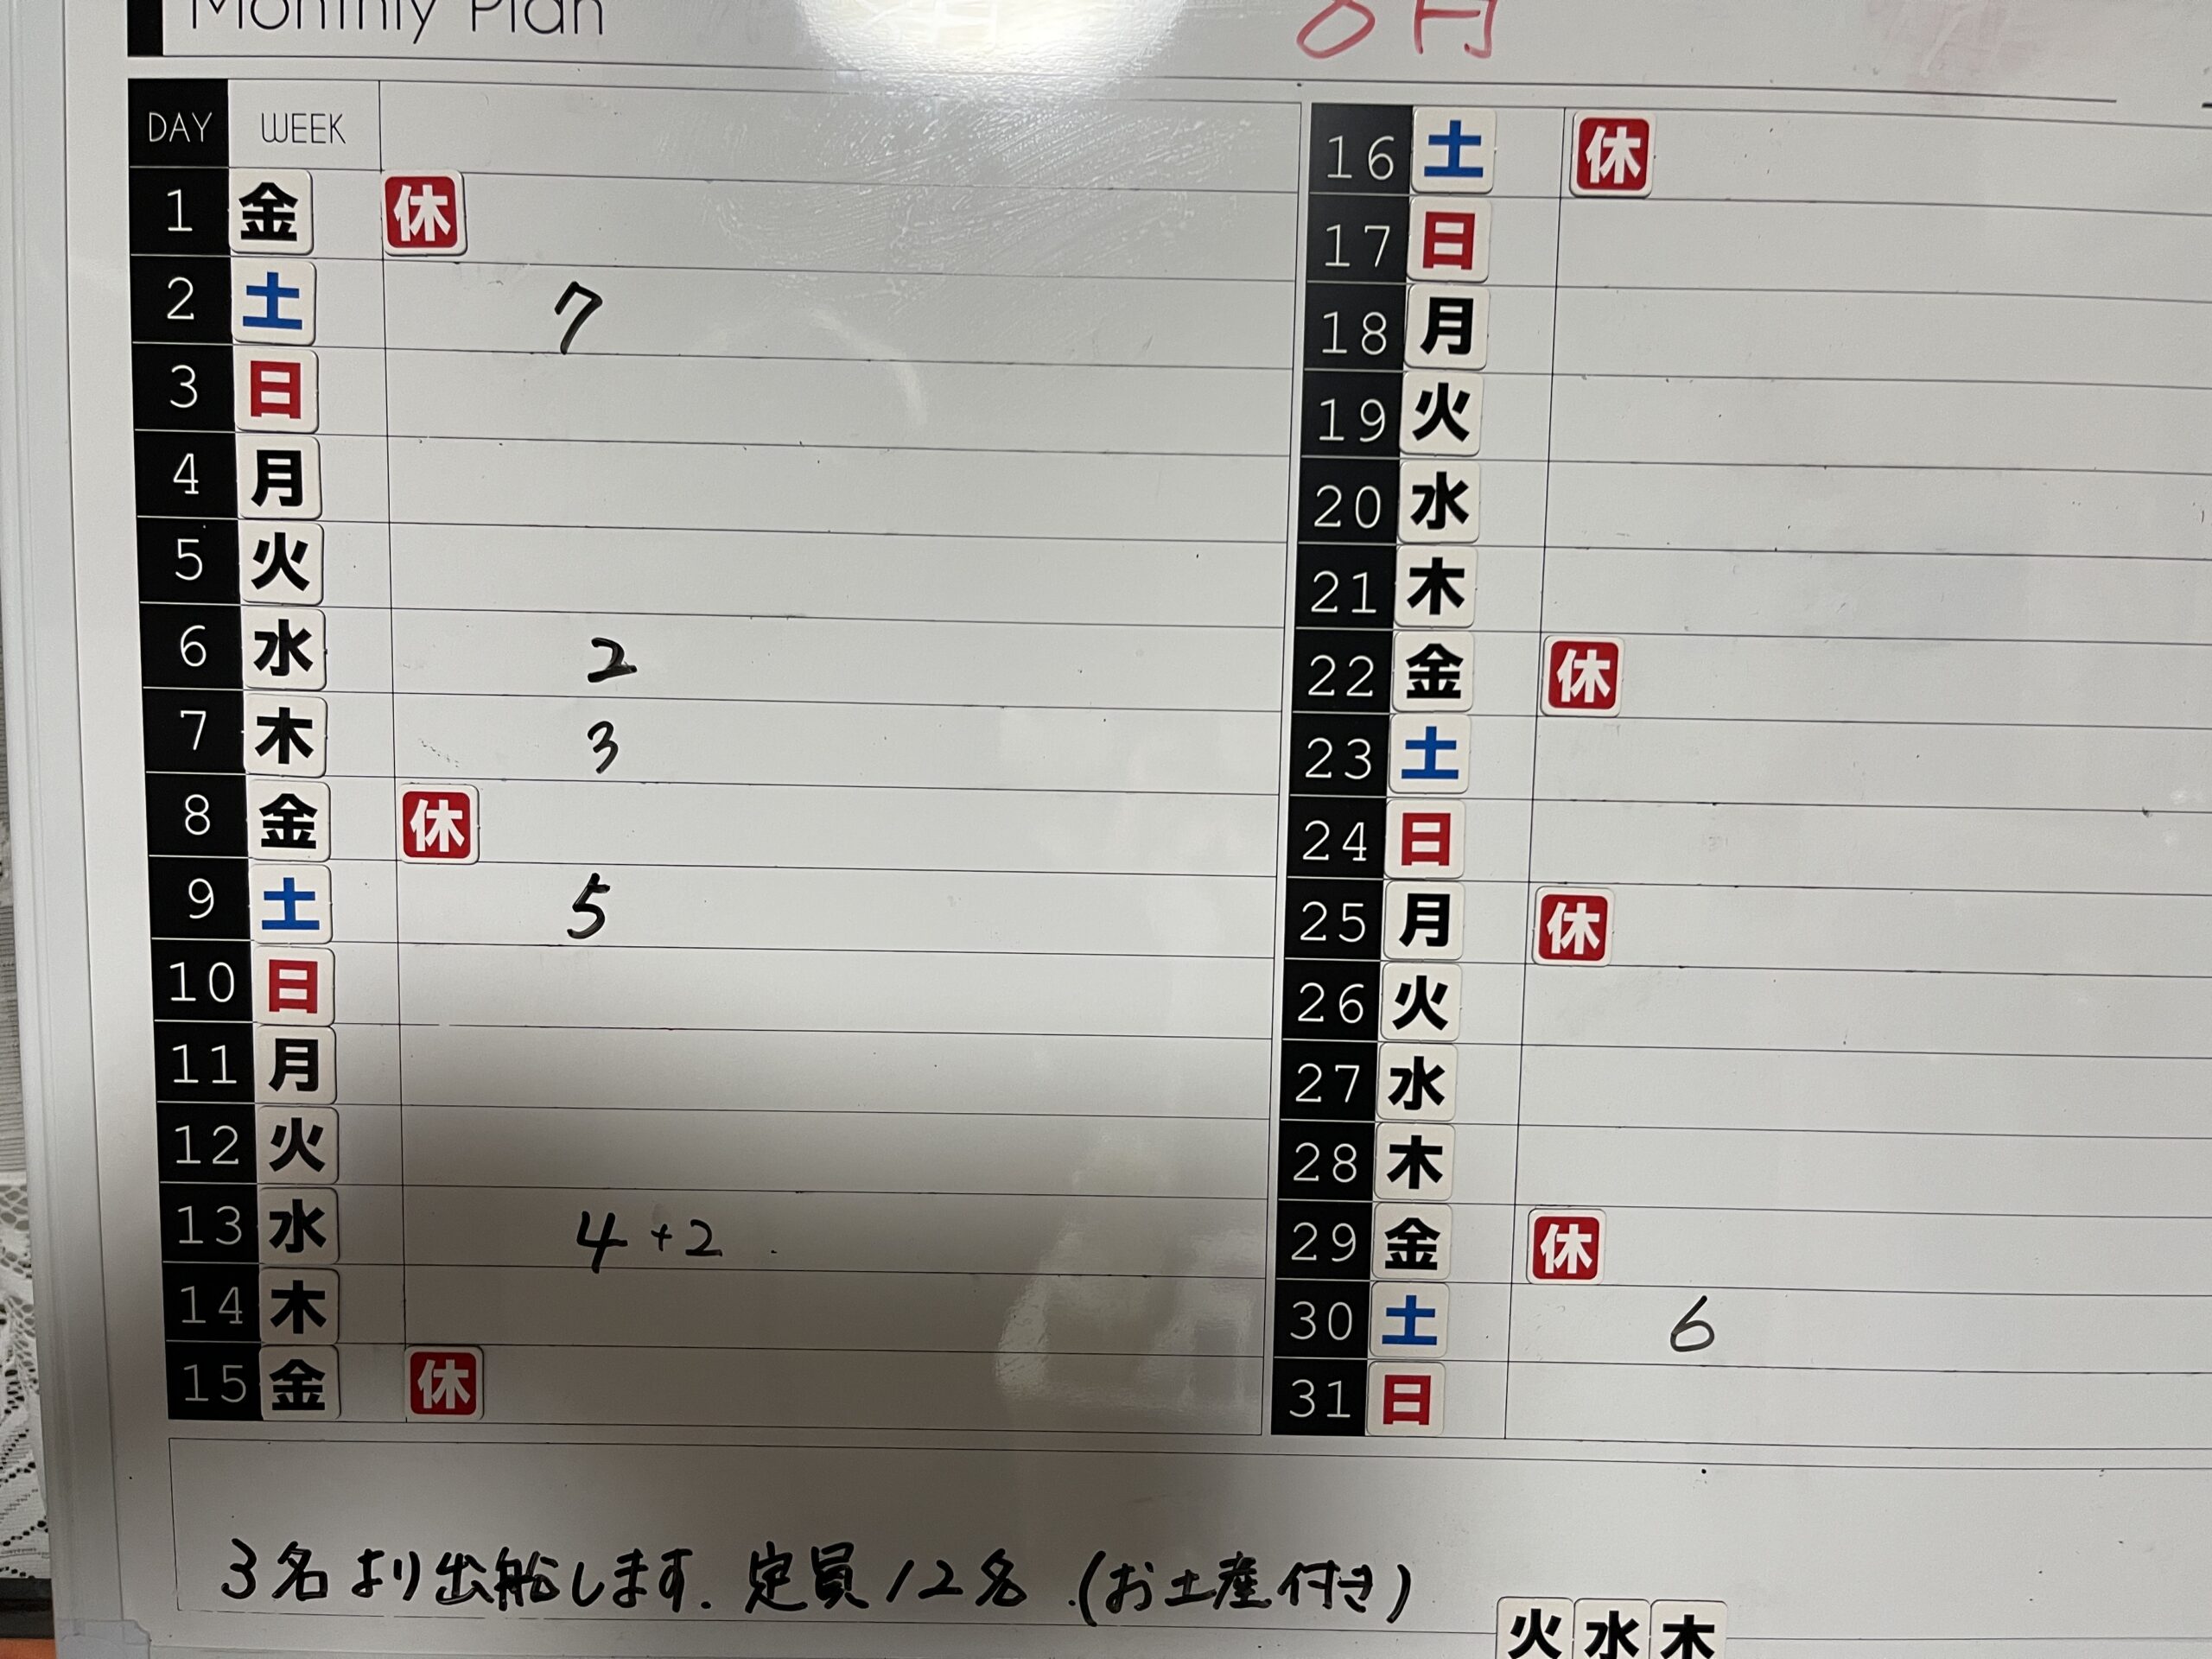 Monthly Plan 8月
DAY WEEK
1 金 休
2 土 7
3 日
4 月
5 火
6 水 2
7 木 3
8 金 休
9 土 5
10 日
11 月
12 火
13 水 4+2
14 木
15 金 休
16 土 休
17 日
18 月
19 火
20 水
21 木
22 金 休
23 土
24 日
25 月 休
26 火
27 水
28 木
29 金 休
30 土 6
31 日
3名より出船します. 定員12名 (お土産付き)
火 水 木